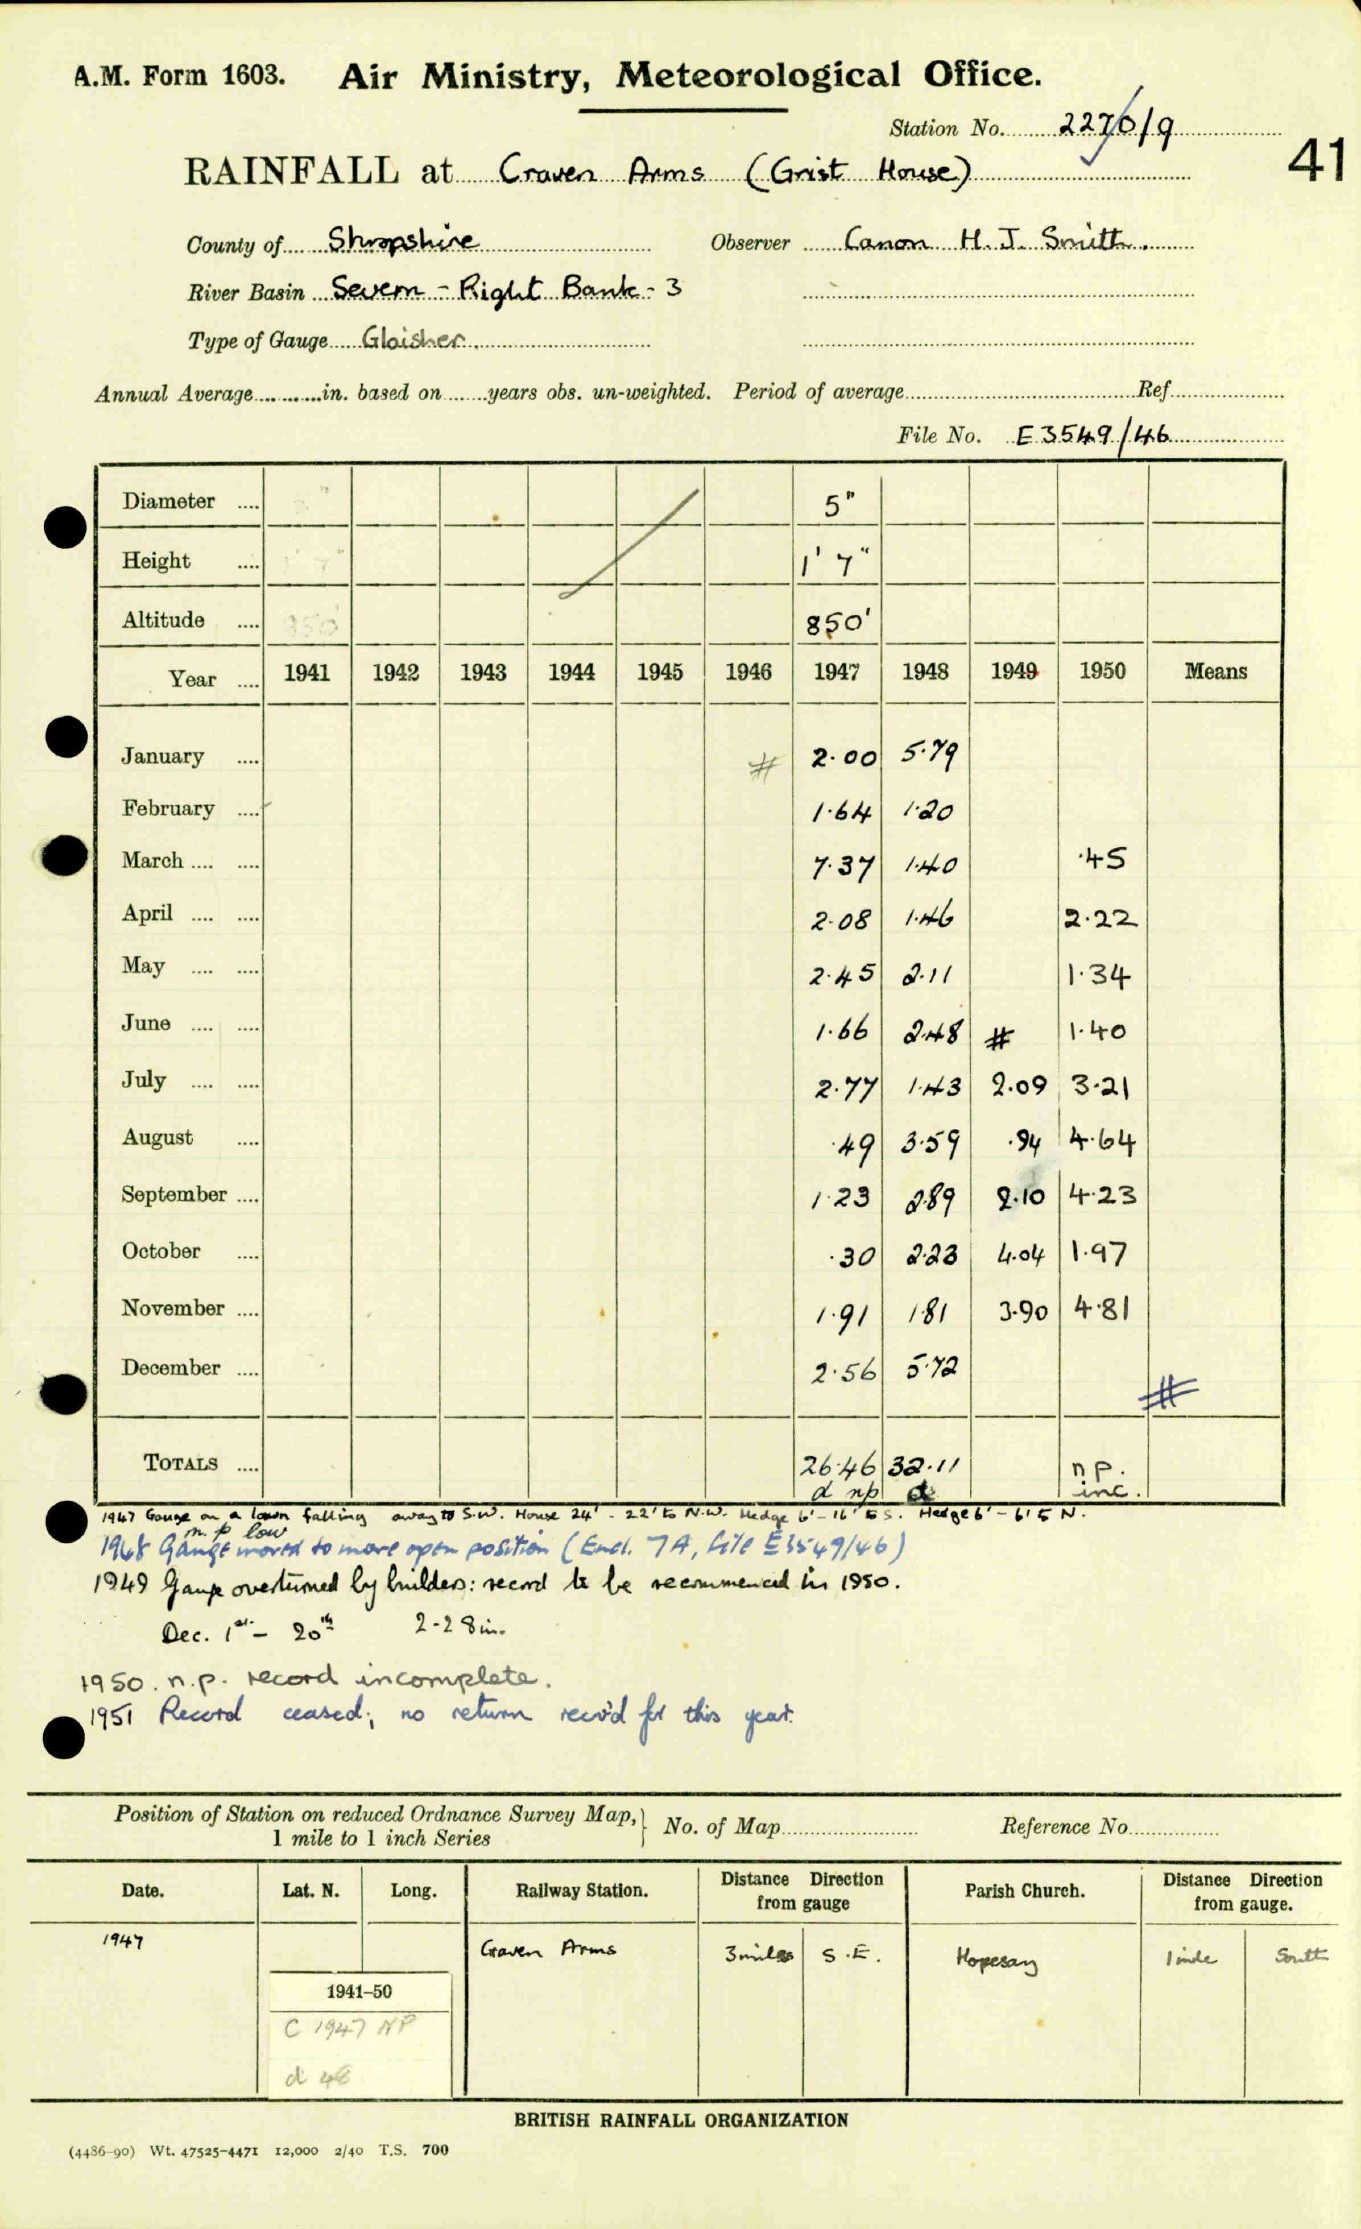 A.M. Form 1603. Air Ministry, Meteorological Office.
Station No. 2270/9
41
RAINFALL at Craven Arms (Grist House)
County of Shropshire Observer Canon H. J. Smith.
River Basin Severn - Right Bank - 3
Type of Gauge Glaisher.
Annual Average in. based on years obs. un-weighted. Period of average Ref
File No. E 3549/46
Diameter 5"
Height 1' 7"
Altitude 350' 850'
Year 1941 1942 1943 1944 1945 1946 1947 1948 1949 1950 Means
January # 2.00 5.79
February 1.64 1.20
March 7.37 1.40 .45
April 2.08 1.46 2.22
May 2.45 2.11 1.34
June 1.66 2.48 # 1.40
July 2.77 1.43 2.09 3.21
August .49 3.59 .94 4.64
September 1.23 2.89 2.10 4.23
October .30 2.23 4.04 1.97
November 1.91 1.81 3.90 4.81
December 2.56 5.72 #
TOTALS 26.46 32.11 n p.
d np d inc.
1947 Gauge on a lawn falling away to S.W. House 24' - 22' to N.W. Hedge 6' - 16' to S. Hedge 6' - 6' to N.
n. p low
1948 Gauge moved to more open position (Encl. 7A, file E3549/46)
1949 Gauge overturned by builders: record to be recommenced in 1950.
Dec. 1st - 20th 2.28in.
1950. n.p. record incomplete.
1951 Record ceased; no return recv'd for this year.
Position of Station on reduced Ordnance Survey Map, 1 mile to 1 inch Series } No. of Map Reference No
Date. Lat. N. Long. Railway Station. Distance Direction from gauge Parish Church. Distance Direction from gauge.
1947 Craven Arms 3 miles S.E. Hopesay 1 mile South
1941-50
C 1947 NP
d 48
BRITISH RAINFALL ORGANIZATION
(4486-90) Wt. 47525-4471 12,000 2/40 T.S. 700